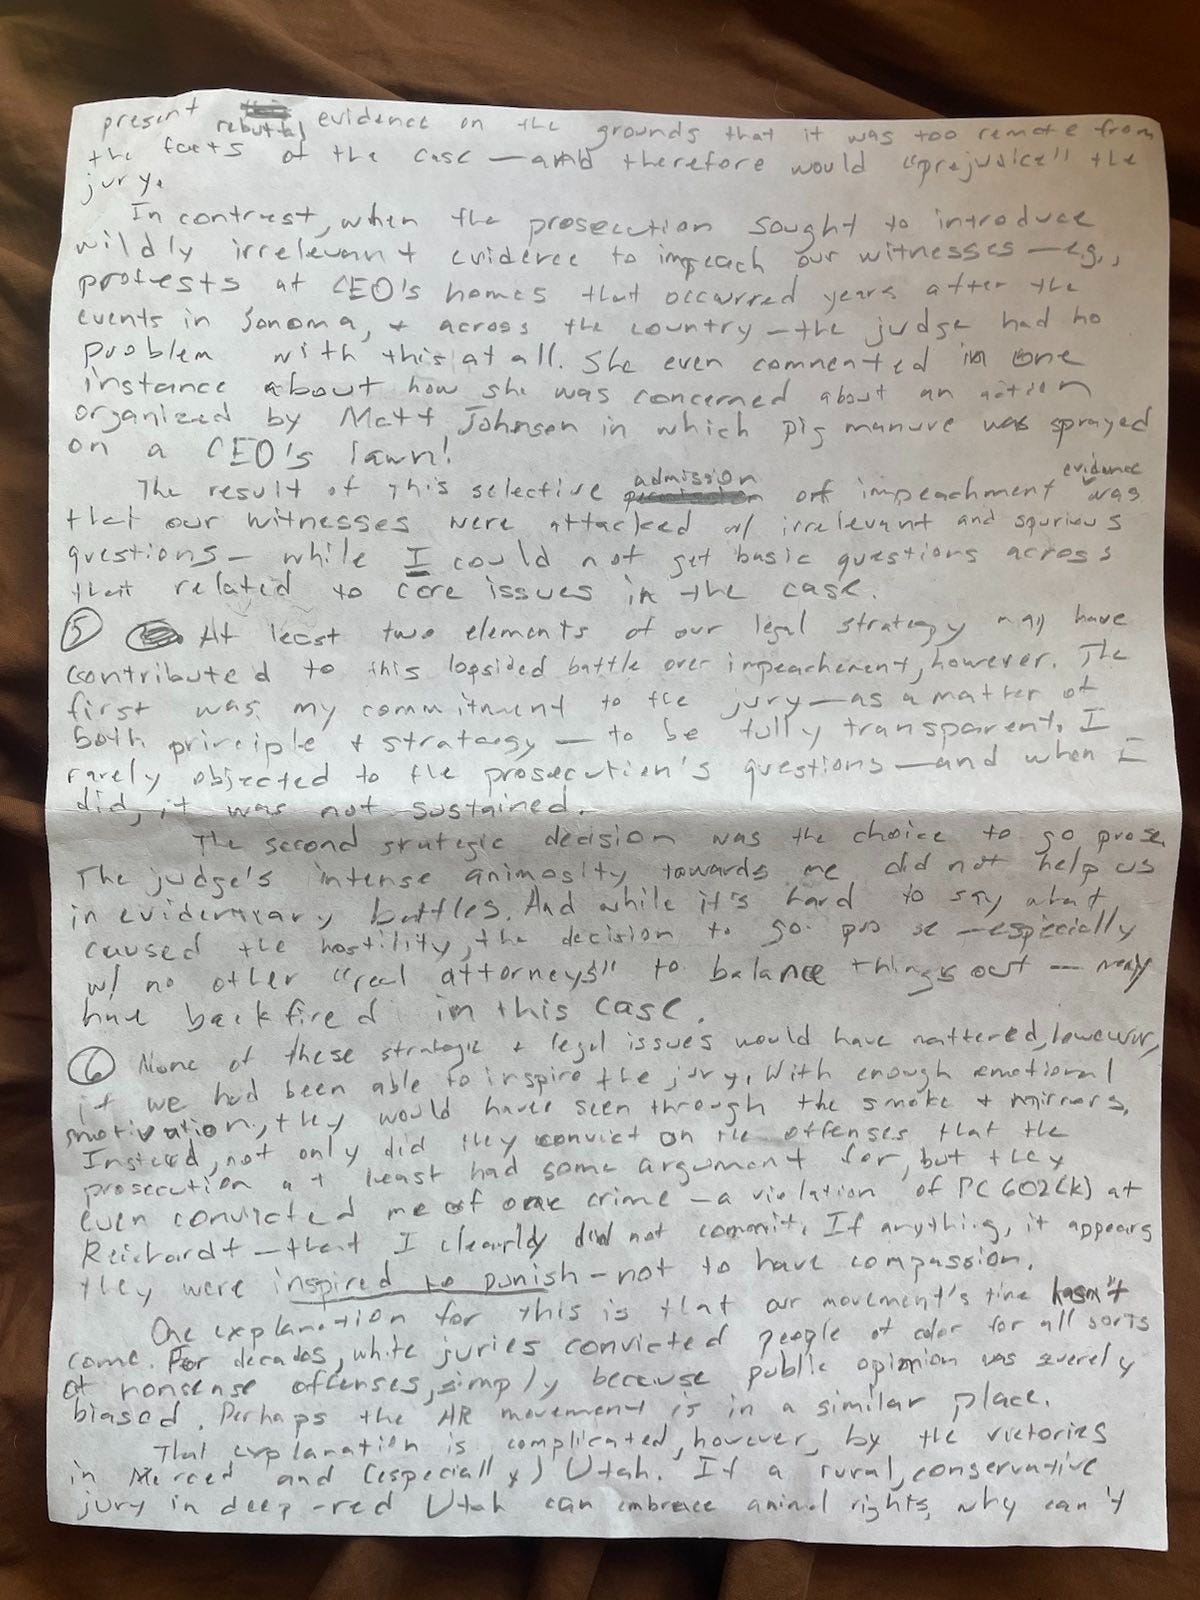 present rebuttal evidence on the grounds that it was too remote from
the facts of the case — and therefore would "prejudice" the
jury.
In contrast, when the prosecution sought to introduce
wildly irrelevant evidence to impeach our witnesses — e.g.,
protests at CEO's homes that occurred years after the
events in Sonoma, + across the country — the judge had no
problem with this at all. She even commented in one
instance about how she was concerned about an action
organized by Matt Johnson in which pig manure was sprayed
on a CEO's lawn!
The result of this selective admission of impeachment evidence was
that our witnesses were attacked w/ irrelevant and spurious
questions — while I could not get basic questions across
that related to core issues in the case.
5 At least two elements of our legal strategy may have
contributed to this lopsided battle over impeachement, however. The
first was my commitment to the jury — as a matter of
both principle + strategy — to be fully transparent. I
rarely objected to the prosecution's questions — and when I
did, it was not sustained.
The second strategic decision was the choice to go pro se.
The judge's intense animosity towards me did not help us
in evidentiary battles. And while it's hard to say what
caused the hostility, the decision to go pro se — especially
w/ no other "real attorneys" to balance things out — may
have backfired in this case.
6 None of these strategic + legal issues would have mattered, however,
if we had been able to inspire the jury. With enough emotional
motivation, they would have seen through the smoke + mirrors.
Instead, not only did they convict on the offenses that the
prosecution at least had some argument for, but they
even convicted me of one crime — a violation of PC 602(k) at
Reichardt — that I clearly did not commit. If anything, it appears
they were inspired to punish — not to have compassion.
One explanation for this is that our movement's time hasn't
come. For decades, white juries convicted people of color for all sorts
of nonsense offenses, simply because public opinion was severely
biased. Perhaps the AR movement is in a similar place.
That explanation is complicated, however, by the victories
in Merced and (especially) Utah. If a rural, conservative
jury in deep-red Utah can embrace animal rights, why can't